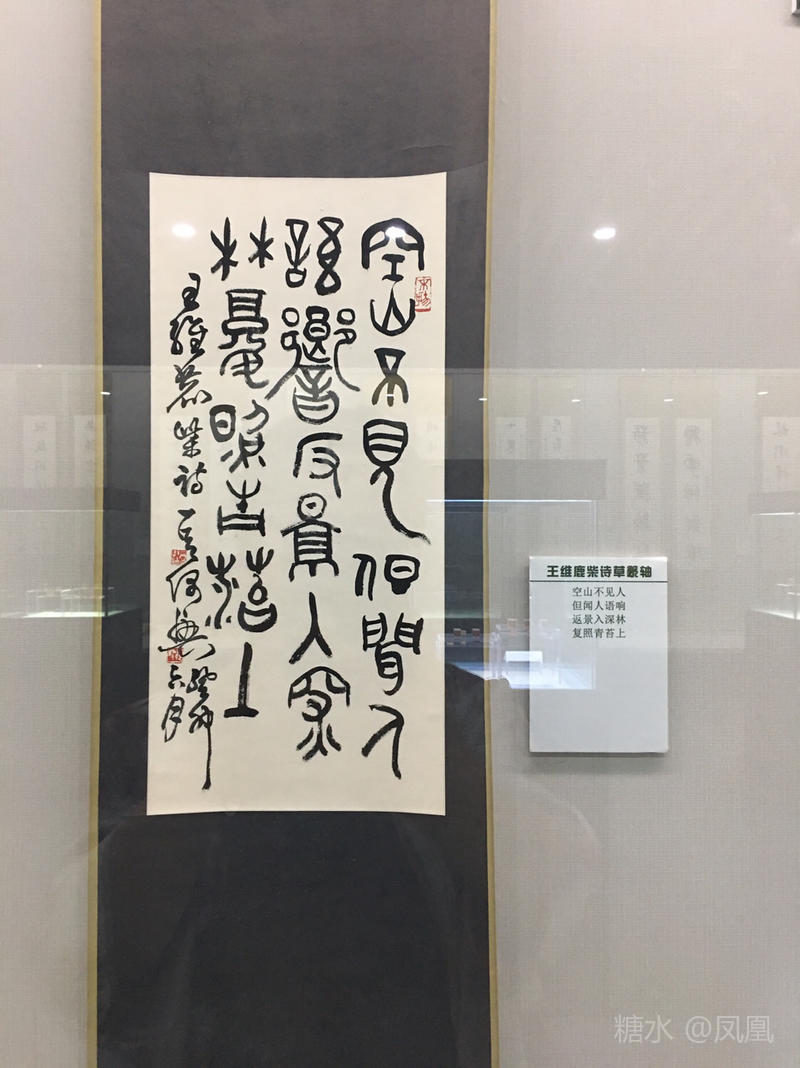 空山不見但聞人
語響反景入罙
林復照青苔上
王維鹿柴詩
王维鹿柴诗草篆轴
空山不见人
但闻人语响
返景入深林
复照青苔上
糖水 @凤凰